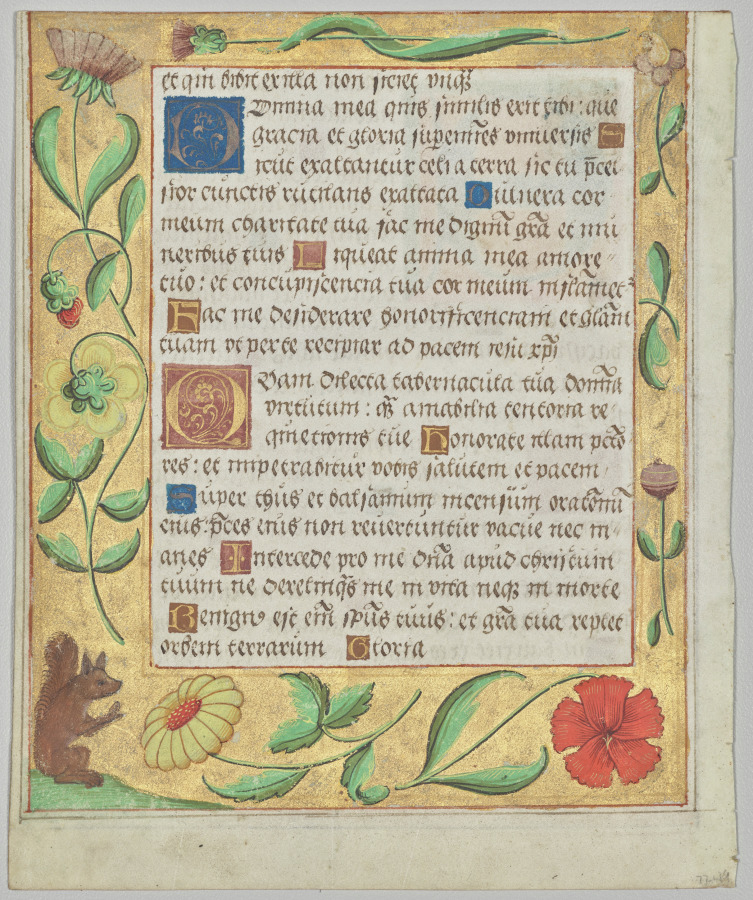 et qui bibit ex illa non siciet unq̃
Omina mea quis similis erit tibi: que
gracia et gloria superemines universis S
icut exaltantur celi a terra sic tu p̃cel
sior cunctis rutilans exaltata Vulnera cor
meum charitate tua fac me dignũ grã et mu
neribus tuis Liqueat anima mea amore
tuo: et concupiscencia tua cor meum inflamet
Fac me desiderare honorificenciam et glãm
tuam ut per te recipiar ad pacem ieiu xp̃i
Quam dilecta tabernacula tua domĩa
virtutum: q̃ amabilia tentoria re
quietionis tue Honorate illam pc̃to
res: et impetrabitur vobis salutem et pacem
Super thus et balsamum incensum orationũ
eius: p̃ces eius non revertuntur vacue nec in
anes Intercede pro me dñã apud christum
tuum ne derelinq̃s me in vita neq̃ in morte
Benigno est em̃ sp̃us tuus: et grã tua replet
orbem terrarum Gloria